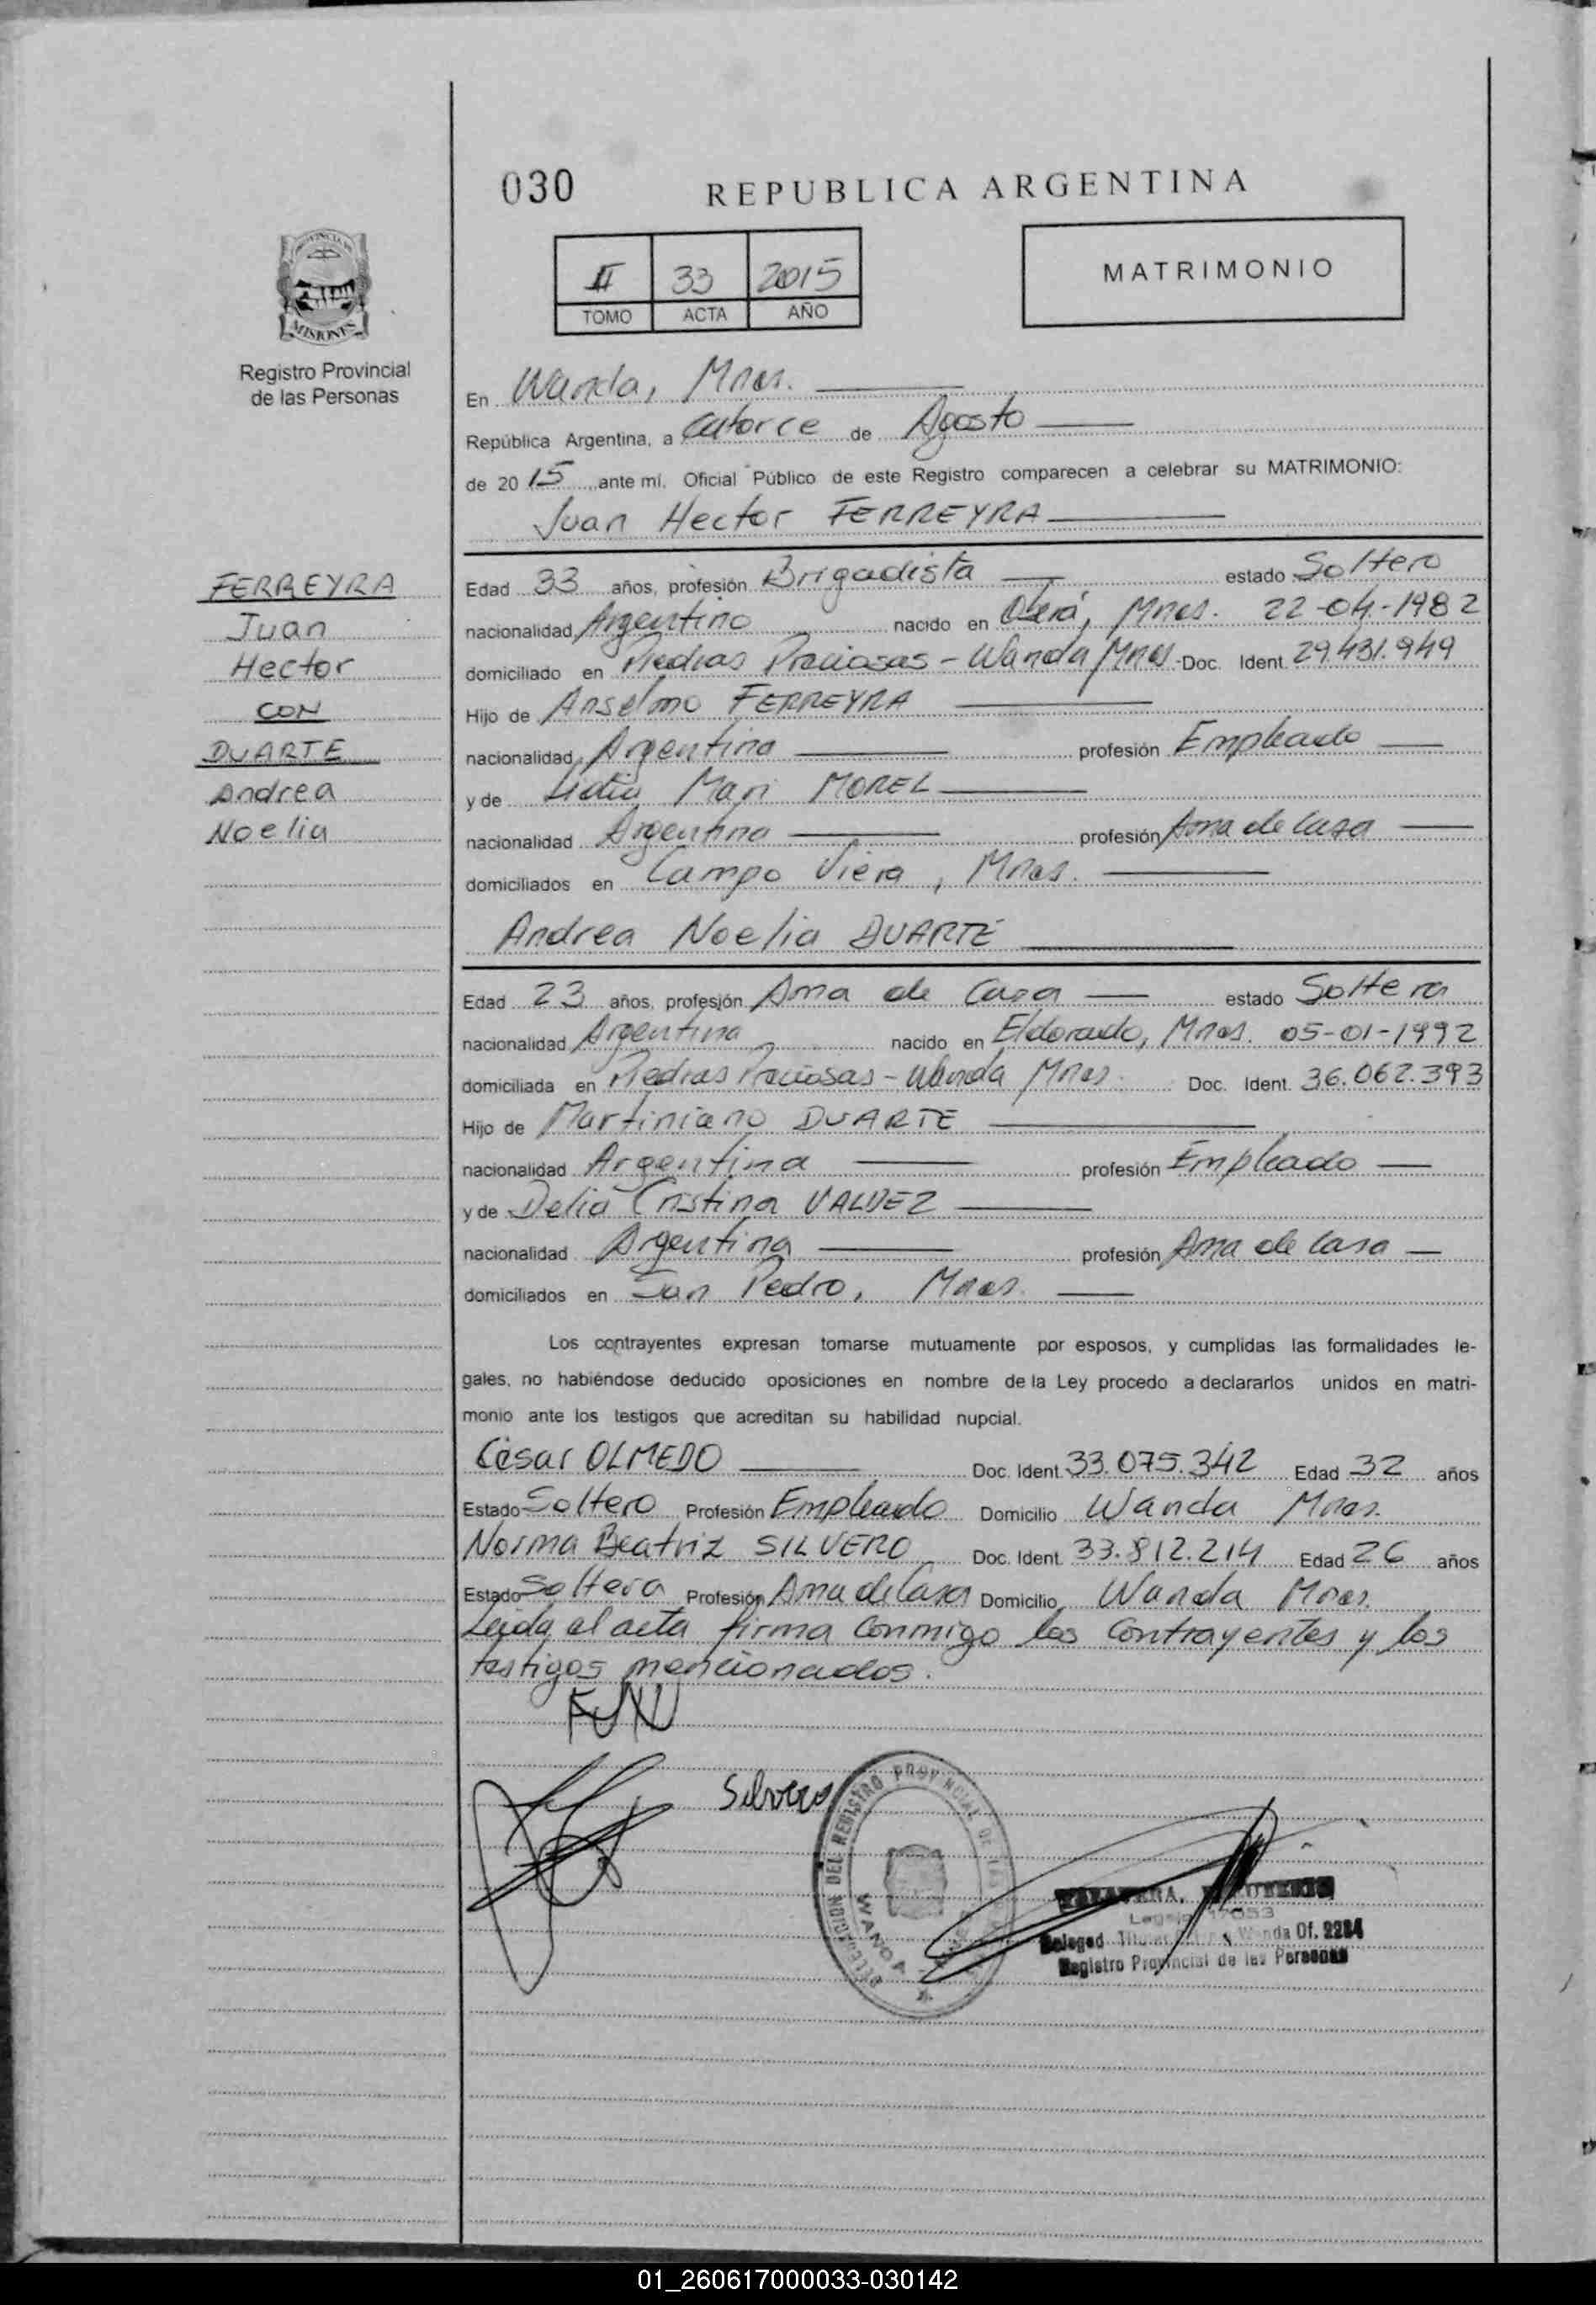 030
REPUBLICA ARGENTINA
PROVINCIA DE
MISIONES
Registro Provincial
de las Personas
II 33 2015
TOMO ACTA AÑO
MATRIMONIO
En Wanda, Mnes.
República Argentina, a catorce de Agosto
de 20 15 ante mí, Oficial Público de este Registro comparecen a celebrar su MATRIMONIO:
Juan Hector FERREYRA
FERREYRA
Juan
Hector
CON
DUARTE
Andrea
Noelia
Edad 33 años, profesión Brigadista estado Soltero
nacionalidad Argentino nacido en Oberá, Mnes. 22-04-1982
domiciliado en Piedras Preciosas - Wanda Mnes. Doc. Ident. 29.431.949
Hijo de Anselmo FERREYRA
nacionalidad Argentina profesión Empleado
y de Lidia Mari MOREL
nacionalidad Argentina profesión Ama de Casa
domiciliados en Campo Viera, Mnes.
Andrea Noelia DUARTE
Edad 23 años, profesión Ama de Casa estado Soltera
nacionalidad Argentina nacido en Eldorado, Mnes. 05-01-1992
domiciliada en Piedras Preciosas - Wanda Mnes. Doc. Ident. 36.062.393
Hijo de Martiniano DUARTE
nacionalidad Argentina profesión Empleado
y de Delia Cristina VALDEZ
nacionalidad Argentina profesión Ama de Casa
domiciliados en San Pedro, Mnes.
Los contrayentes expresan tomarse mutuamente por esposos, y cumplidas las formalidades le-
gales, no habiéndose deducido oposiciones en nombre de la Ley procedo a declararlos unidos en matri-
monio ante los testigos que acreditan su habilidad nupcial.
César OLMEDO Doc. Ident. 33.075.342 Edad 32 años
Estado Soltero Profesión Empleado Domicilio Wanda Mnes.
Norma Beatriz SILVERO Doc. Ident. 33.812.214 Edad 26 años
Estado Soltera Profesión Ama de Casa Domicilio Wanda Mnes.
Leida el acta firma conmigo los contrayentes y los
testigos mencionados.
Silvero
DELEGACION DEL REGISTRO PROVINCIAL DE LAS
WANDA
Wanda Of. 2284
Registro Provincial de las Personas
01_260617000033-030142